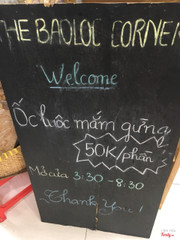 THE BAOLOC CORNER
Welcome
Ốc luộc mắm gừng
50K/phần
Mở cửa 3:30 - 8:30
Thank You!